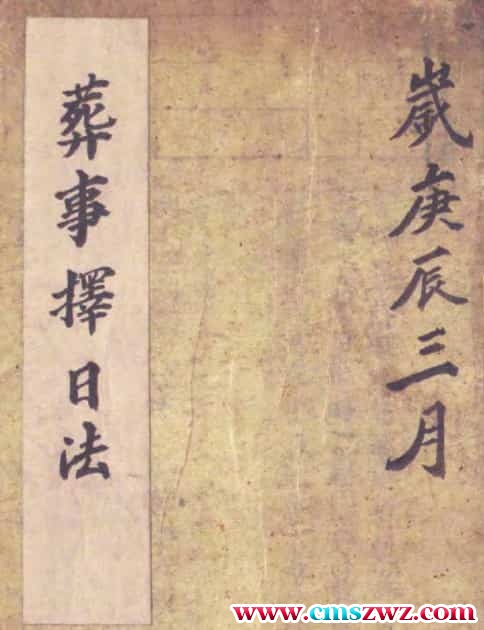 歲庚辰三月
葬事擇日法
www.cmszwz.com